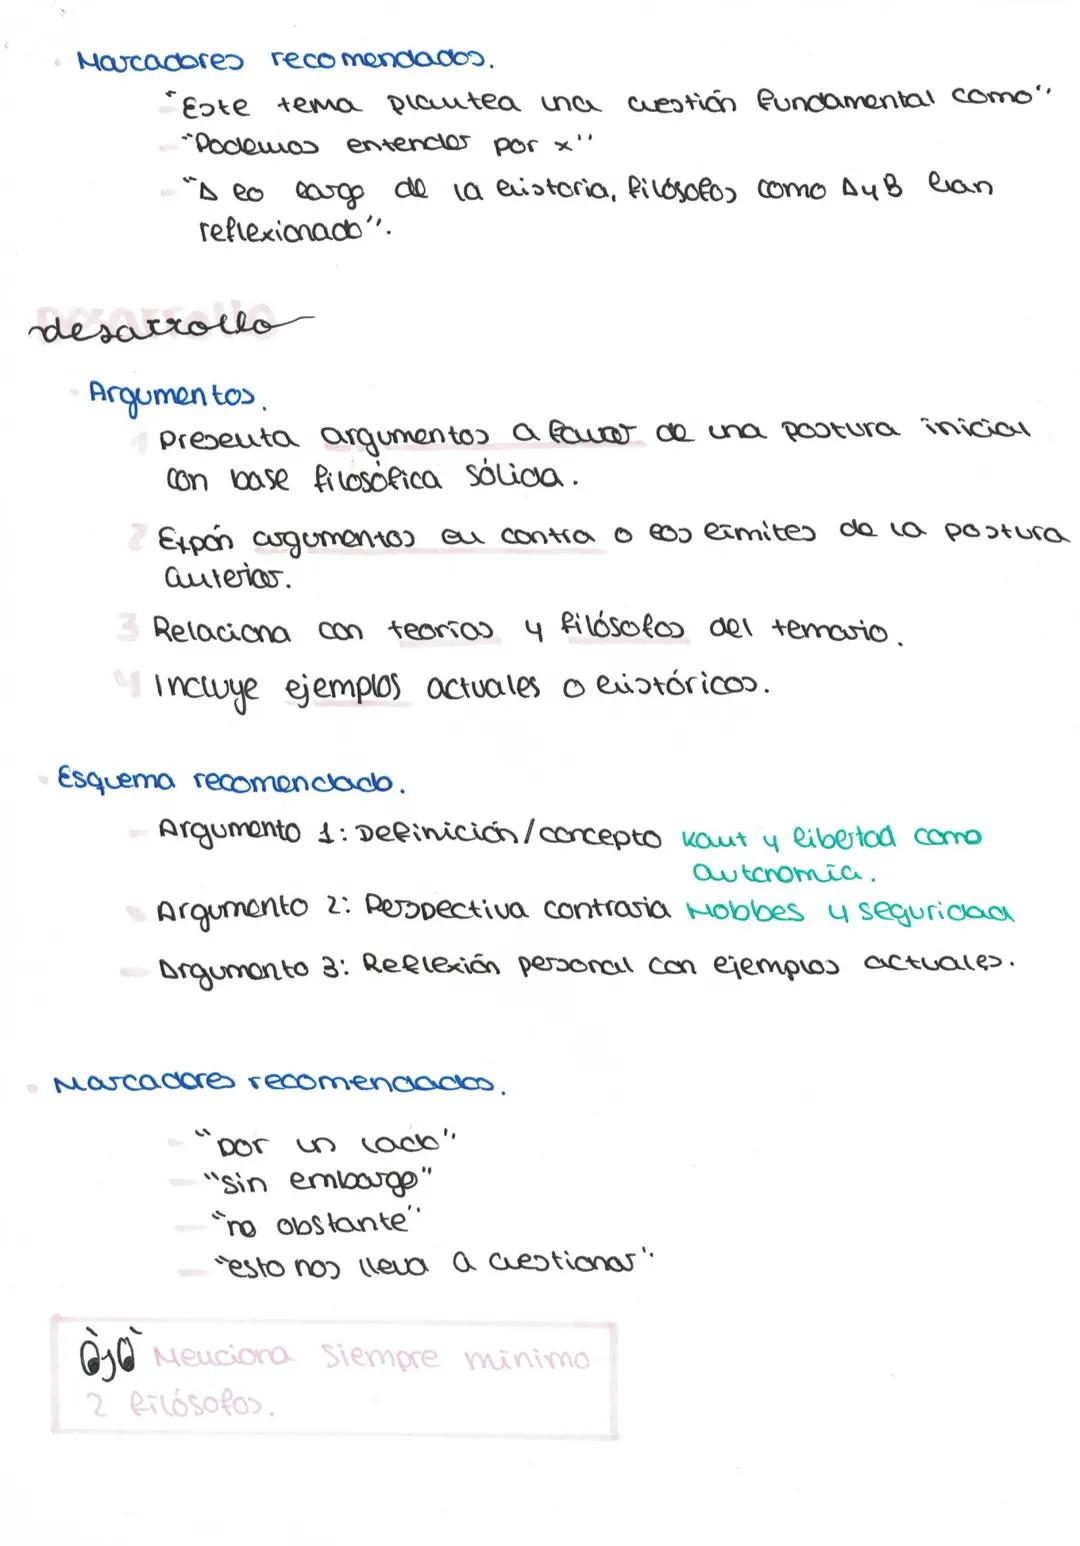 Marcadores recomendados.
"Este tema plantea una cuestión fundamental como"
"Podemos entender por x"
"A lo largo de la historia, filósofos como A y B han
reflexionado".
desarrollo
Argumentos.
1 Presenta argumentos a favor de una postura inicial
con base filosófica sólida.
2 Expón argumentos en contra o los límites de la postura
anterior.
3 Relaciona con teorías y filósofos del temario.
4 Incluye ejemplos actuales o históricos.
Esquema recomendado.
- Argumento 1: Definición/concepto Kant y libertad como
autonomía.
- Argumento 2: Perspectiva contraria Hobbes y seguridad
- Argumento 3: Reflexión personal con ejemplos actuales.
Marcadores recomendados.
- "por un lado"
- "sin embargo"
- "no obstante"
- "esto nos lleva a cuestionar"
OjO Menciona siempre mínimo
2 filósofos.